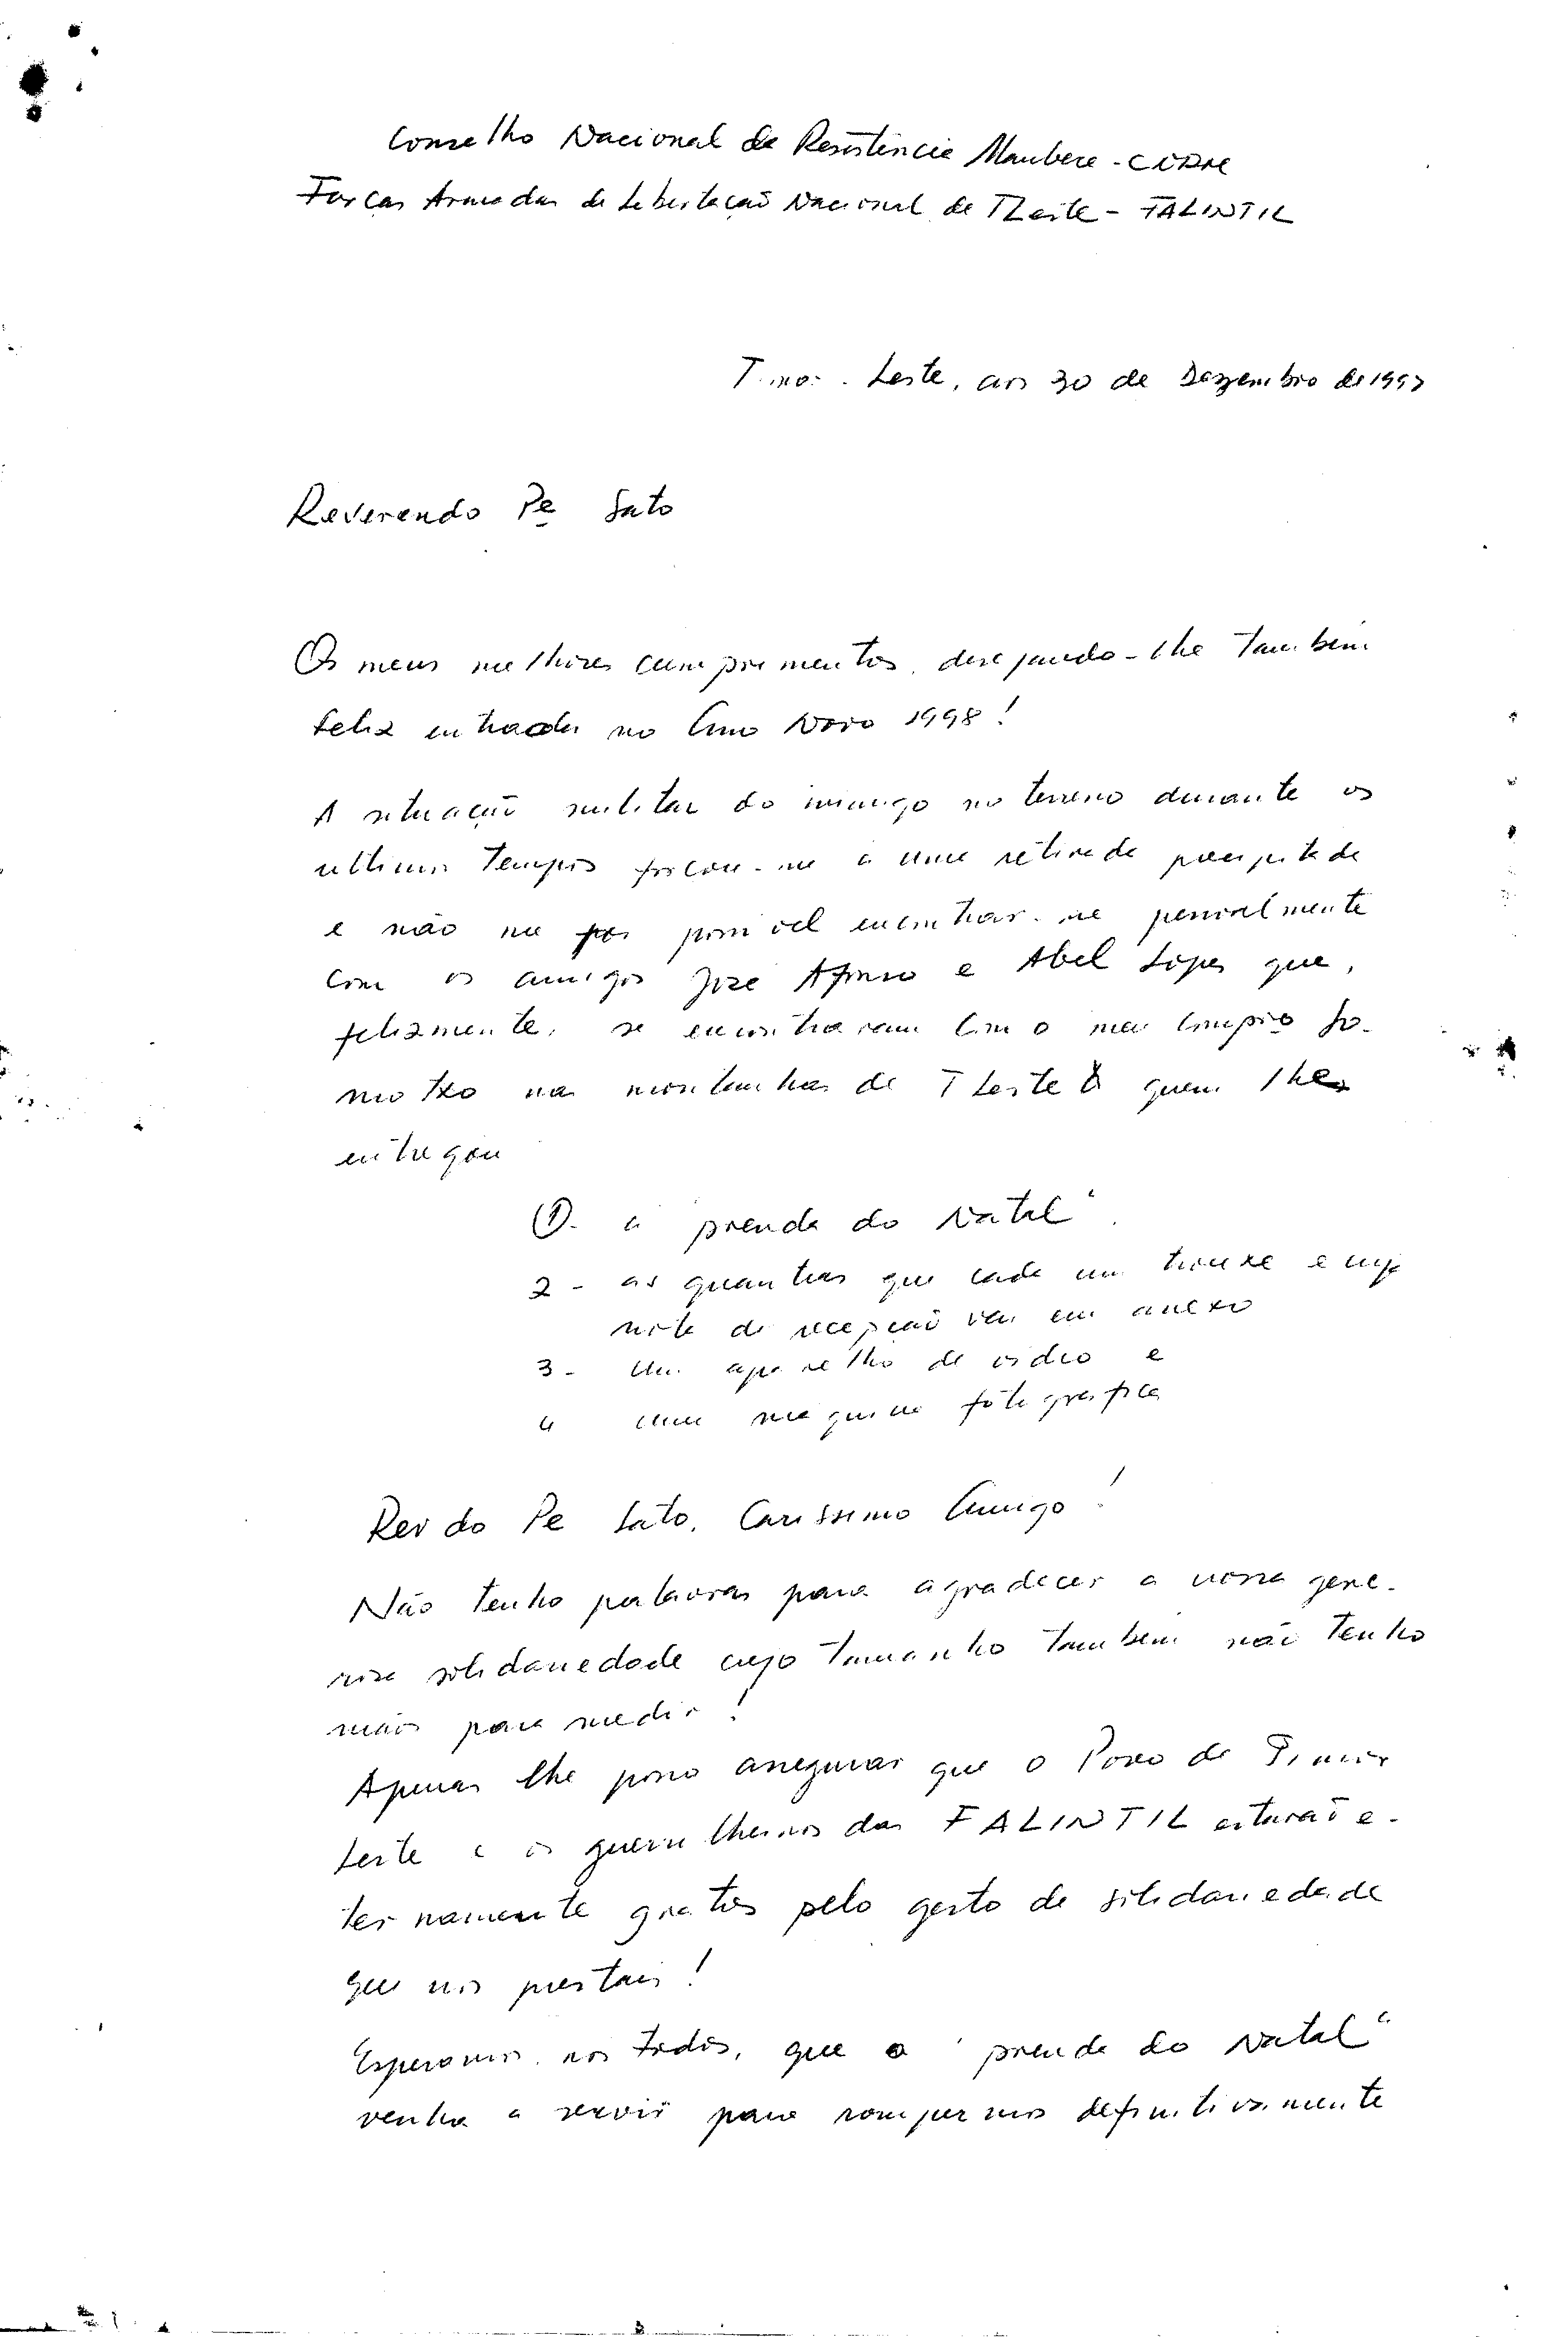 Conselho Nacional de Resistência Maubere - CNRM
Forças Armadas de Libertação Nacional de TLeste - FALINTIL
Timor-Leste, aos 30 de Dezembro de 1997
Reverendo Pe Sato
Os meus melhores cumprimentos, desejando-lhe também
feliz entrada no Ano Novo 1998!
A situação militar do inimigo no terreno durante os
ultimos tempos forçou-me a uma retirada precipitada
e não me foi possivel encontrar-me pessoalmente
com os amigos José Afonso e Abel Lopes que,
felizmente, se encontraram com o meu
nas montanhas de TLeste a quem lhes
entregou
1. a "prenda do Natal"
2 - as quantias que cada um trouxe e cuja
nota de recepção vai em anexo
3 - Um aparelho de video e
4 uma maquina fotografica
Revdo Pe Sato, Carissimo Amigo!
Não tenho palavras para agradecer a vossa gene-
rosa solidariedade cujo tamanho também não tenho
mãos para medir!
Apenas lhe posso assegurar que o Povo de Timor
Leste e os guerrilheiros das FALINTIL estarão e-
ternamente gratos pelo gesto de solidariedade
que nos prestais!
Esperamos, nos todos, que a "prenda do Natal"
venha a servir para rompermos definitivamente